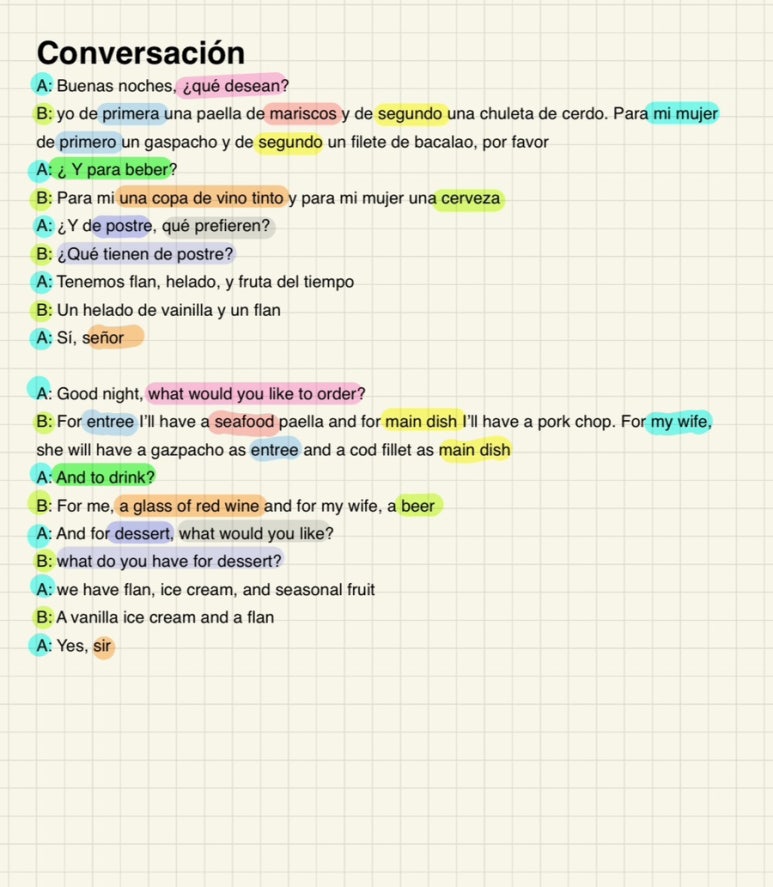 Conversación
A: Buenas noches, ¿qué desean?
B: yo de primera una paella de mariscos y de segundo una chuleta de cerdo. Para mi mujer
de primero un gaspacho y de segundo un filete de bacalao, por favor
A: ¿ Y para beber?
B: Para mi una copa de vino tinto y para mi mujer una cerveza
A: ¿Y de postre, qué prefieren?
B: ¿Qué tienen de postre?
A: Tenemos flan, helado, y fruta del tiempo
B: Un helado de vainilla y un flan
A: Sí, señor
A: Good night, what would you like to order?
B: For entree I'll have a seafood paella and for main dish I'll have a pork chop. For my wife,
she will have a gazpacho as entree and a cod fillet as main dish
A: And to drink?
B: For me, a glass of red wine and for my wife, a beer
A: And for dessert, what would you like?
B: what do you have for dessert?
A: we have flan, ice cream, and seasonal fruit
B: A vanilla ice cream and a flan
A: Yes, sir